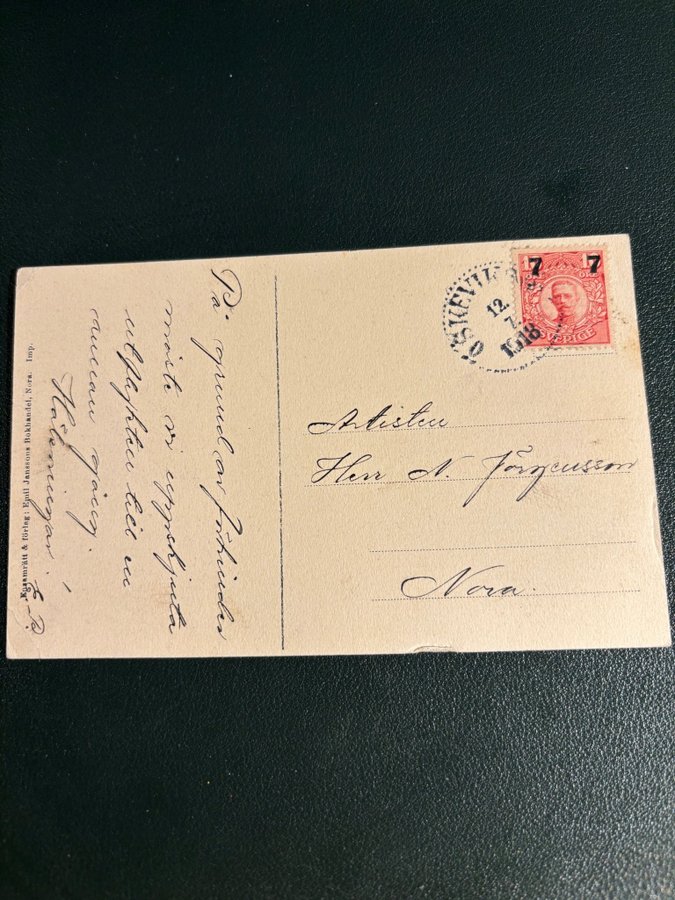 På grund av förhinder
måste vi uppskjuta
utflykten till en
annan gång.
Hälsningar!
E. P.
Ensamrätt & förlag: Emil Janssons Bokhandel, Nora. Imp.
ÖSKEVIK
12. 7.
1918
7 7
ÖRE
SVERIGE
Artisten
Herr N. Jörgensson
Nora.